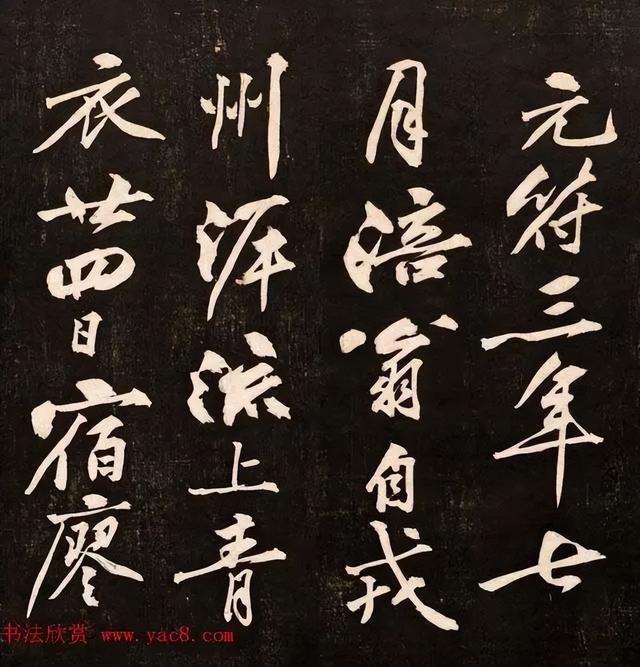 元符三年七
月涪翁自戎
州泝流上青
衣廿四日宿廖
书法欣赏 www.yac8.com